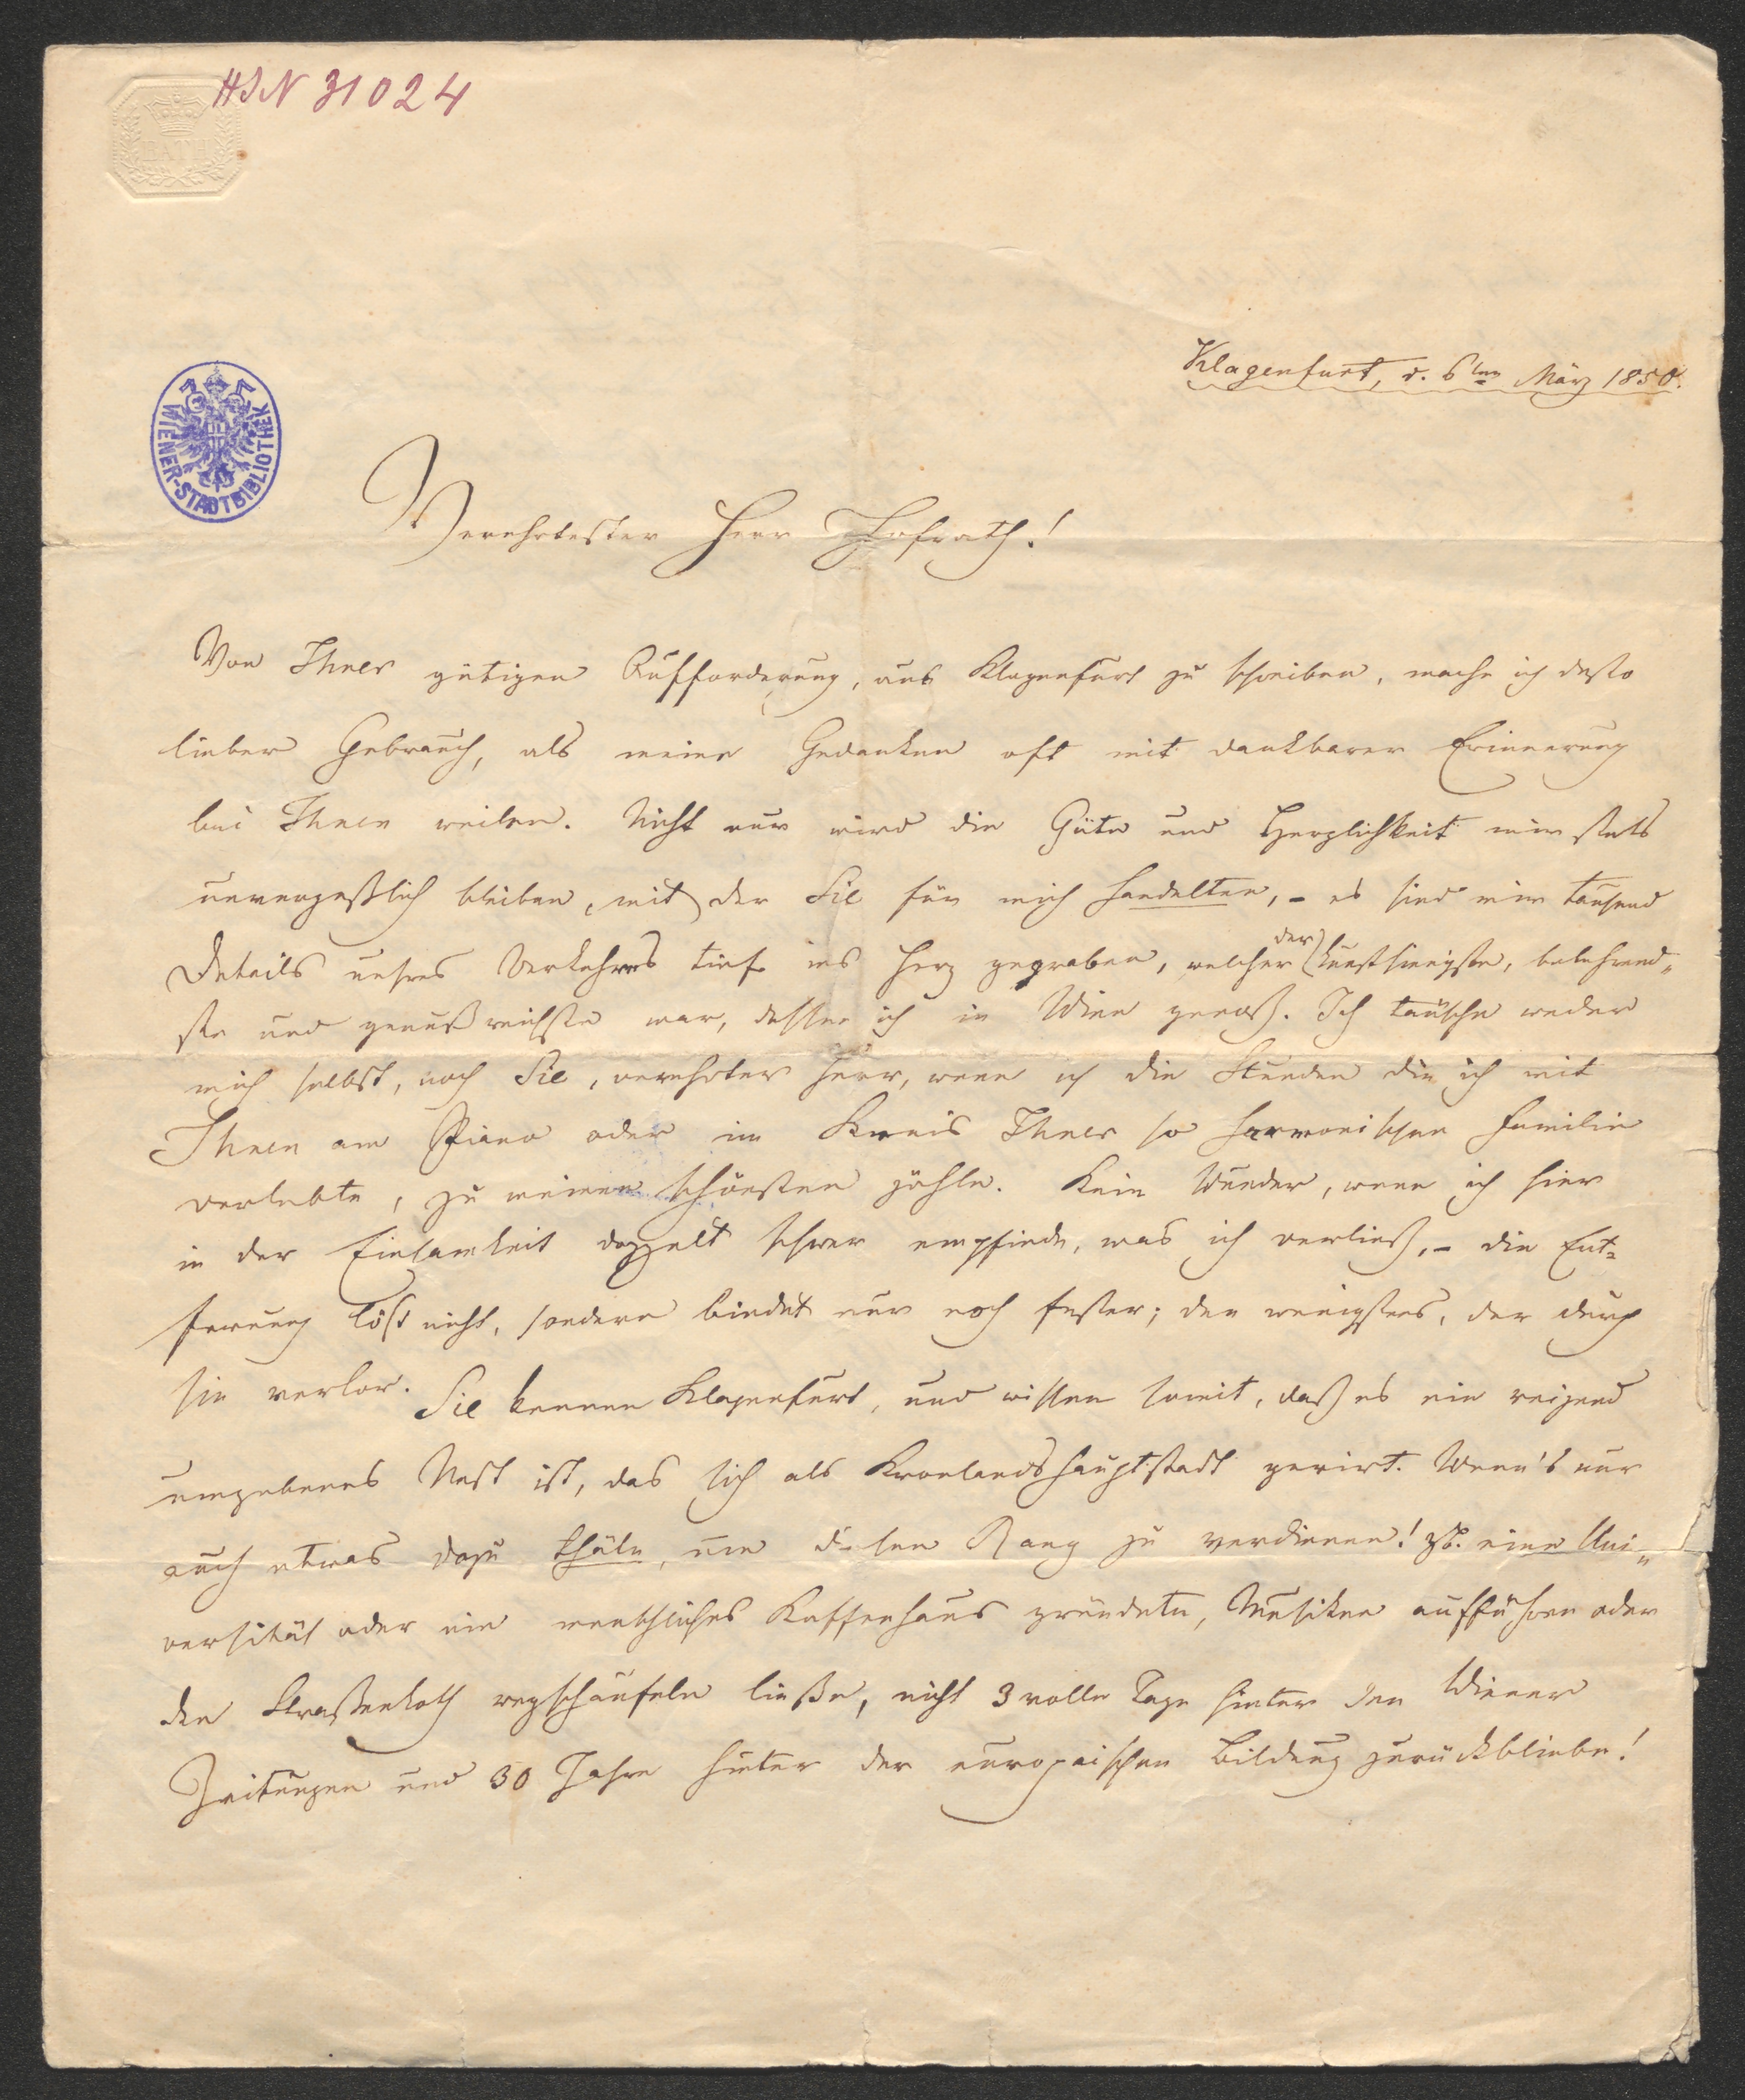 HIN 31024
BATH
WIENER-STADTBIBLIOTHEK
Klagenfurt, d. 6ten März 1850.
Verehrtester Herr Hofrath!
Von Ihrer gütigen Aufforderung, aus Klagenfurt zu schreiben, mache ich desto
lieber Gebrauch, als meine Gedanken oft mit dankbarer Erinnerung
bei Ihnen weilen. Nicht nur wird die Güte und Herzlichkeit mir stets
unvergeßlich bleiben, mit der Sie für mich handelten, - es sind mir tausend
Details unsres Verkehres tief ins Herz gegraben, welcher der kunstsinnigste, belehrend„
ste und genußreichste war, dessen ich in Wien genoß. Ich täusche weder
mich selbst, noch Sie, verehrter Herr, wenn ich die Stunden die ich mit
Ihnen am Piano oder im Kreis Ihrer so harmonischen Familie
verlebte, zu meinen schönsten zähle. Kein Wunder, wenn ich hier
in der Einsamkeit doppelt schwer empfinde, was ich verließ, - die Ent=
fernung löst nicht, sondern bindet nur noch fester; den wenigstens, der durch
sie verlor. Sie kennen Klagenfurt, und wissen somit, daß es ein reizend
umgebenes Nest ist, das sich als Kronlandshauptstadt gerirt. Wenn's nur
auch etwas dazu thäte, um diesen Rang zu verdienen! zB. eine Uni„
versität oder ein menschliches Kaffeehaus gründete, Musiken aufführen oder
den Straßenkoth wegschaufeln ließe, nicht 3 volle Tage hinter den Wiener
Zeitungen und 30 Jahre hinter der europäischen Bildung zurückbliebe!